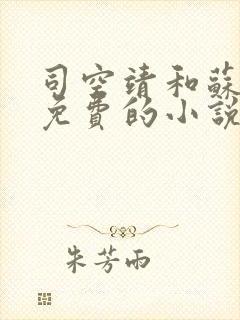 司空靖和蘇
免費的小説
朱芳雨